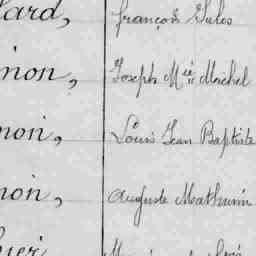 lard, françois Jules
non, Joseph Mie Michel
non, Louis Jean Baptiste
non, Auguste Mathurin